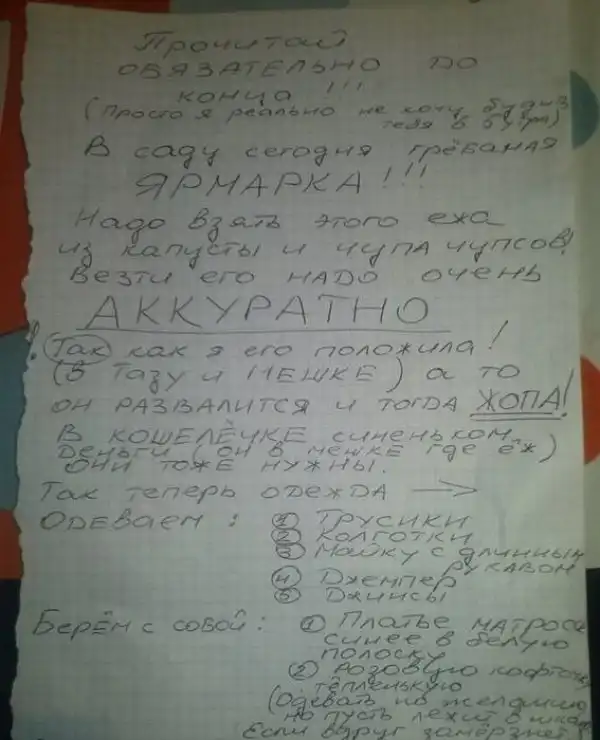 Прочитай
ОБЯЗАТЕЛЬНО ДО
КОНЦА !!!
(Просто я реально не хочу будить
тебя в 6 утра)
В саду сегодня грёбаная
ЯРМАРКА!!!
Надо взять этого ежа
из капусты и ЧУПА ЧУПСОВ!
Везти его НАДО очень
АККУРАТНО
! Так как я его положила!
(В Тазу и МЕШКЕ) а то
ОН РАЗВАЛИТСЯ И ТОГДА ЖОПА!
В КОШЕЛЁЧКЕ СИНЕНЬКОМ
Деньги (он в мешке где ёж)
ОНИ ТОЖЕ НУЖНЫ.
Так теперь одежда →
ОДЕВАЕМ: ① Трусики
② Колготки
③ Майку с длинным
рукавом
④ Джемпер
⑤ Джинсы
Берём с собой: ① Платье матроса
синее в белую
полоску
② Розовую кофточку
тёпленькую
(Одевать по желанию
но пусть лежит в шкафу
Если вдруг замёрзнет